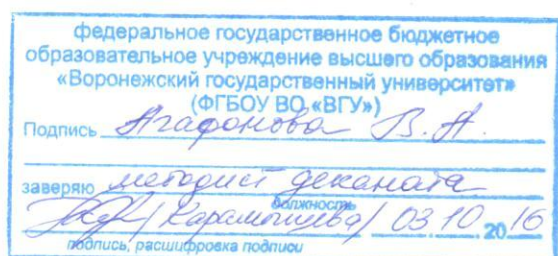 федеральное государственное бюджетное
образовательное учреждение высшего образования
«Воронежский государственный университет»
(ФГБОУ ВО «ВГУ»)
Подпись Агафонова В. А.
заверяю методист деканата
должность
/Карамышева/ 03.10.2016
подпись, расшифровка подписи